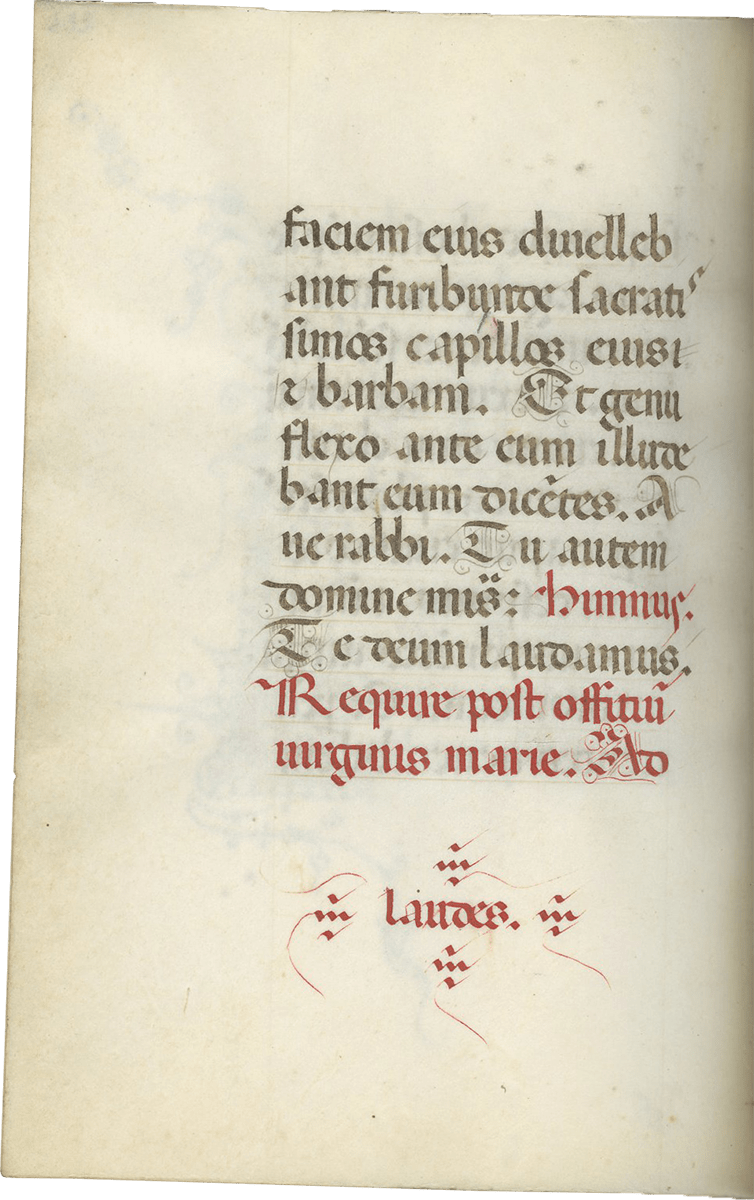 faciem eius diuelleb
ant furibunde sacratis
simos capillos eius
⁊ barbam. Et genu
flexo ante eum illude
bant eum dicẽtes. A
ue rabbi. Tu autem
domine mis̈: himnus.
Te deum laudamus.
Require post offitiũ
uirginis marie. Ad
laudes.